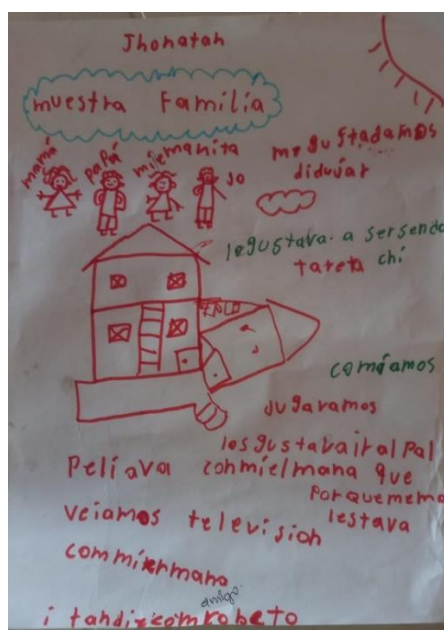 Jhonatan
muestra Familia
mamá papá miermanita Jo
me gustadamos
didujar
legustava a sersendo
tareta chi
comíamos
Jugaramos
les gustava ir al pal
Peliava conmielmana que
Porquememo
lestava
veiamos television
commiermano
amigo
i tandixcomrobeto